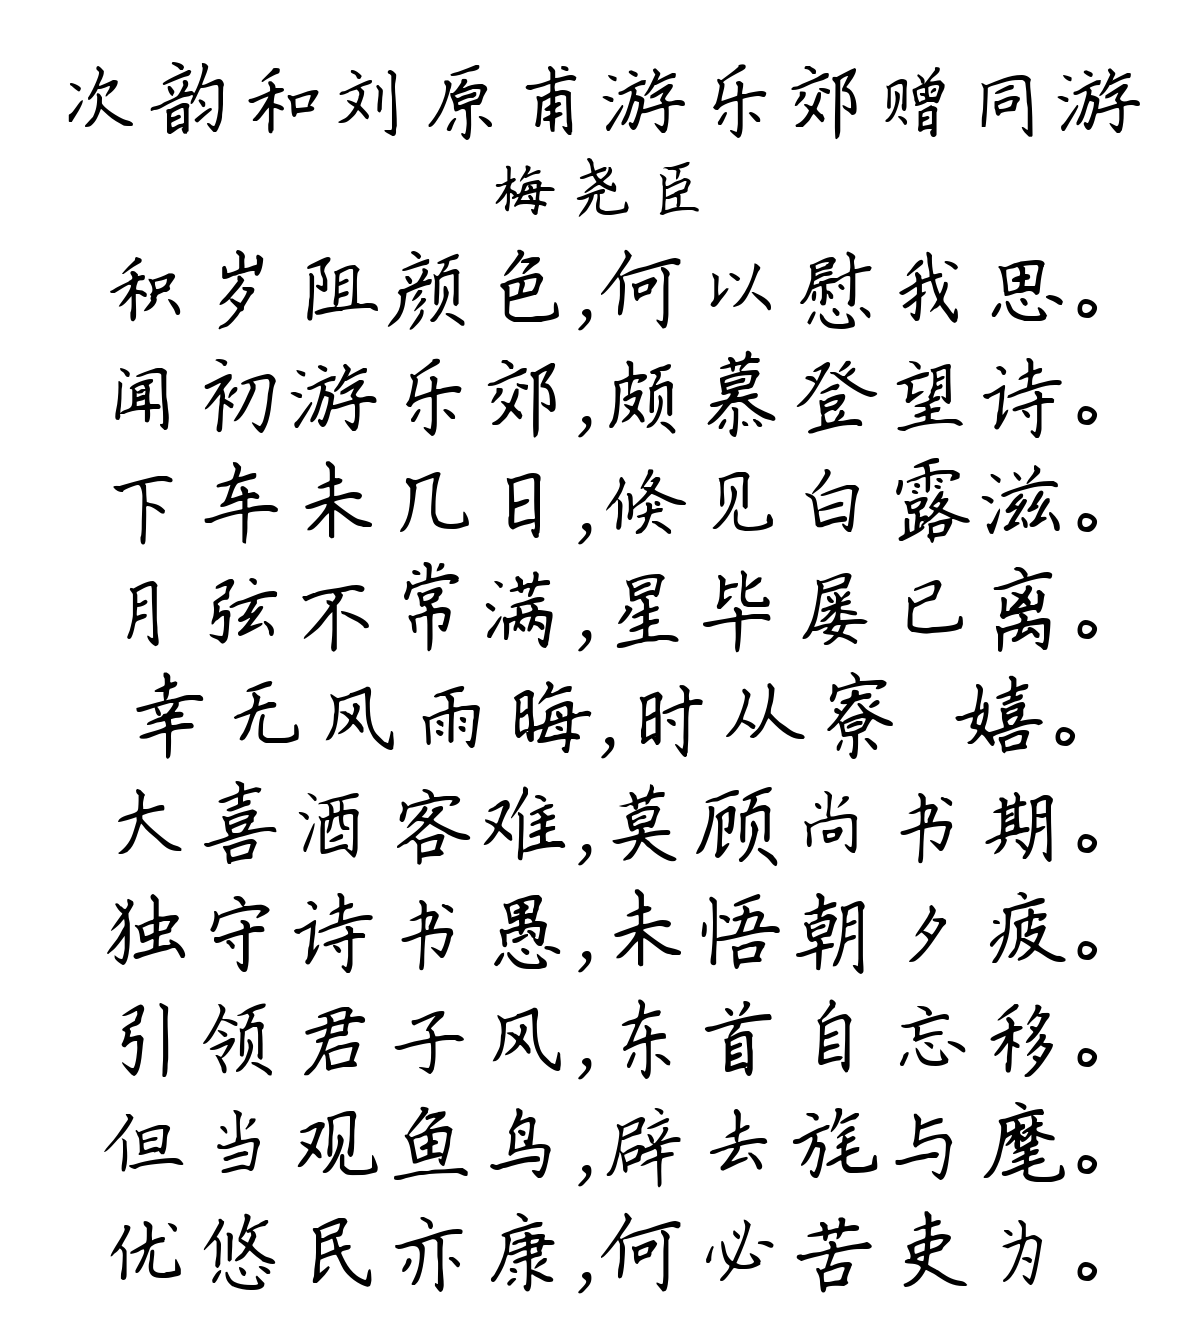 次韵和刘原甫游乐郊赠同游
梅尧臣
积岁阻颜色,何以慰我思。
闻初游乐郊,颇慕登望诗。
下车未几日,倏见白露滋。
月弦不常满,星毕屡已离。
幸无风雨晦,时从寮 嬉。
大喜酒客难,莫顾尚书期。
独守诗书愚,未悟朝夕疲。
引领君子风,东首自忘移。
但当观鱼鸟,辟去旄与麾。
优悠民亦康,何必苦吏为。